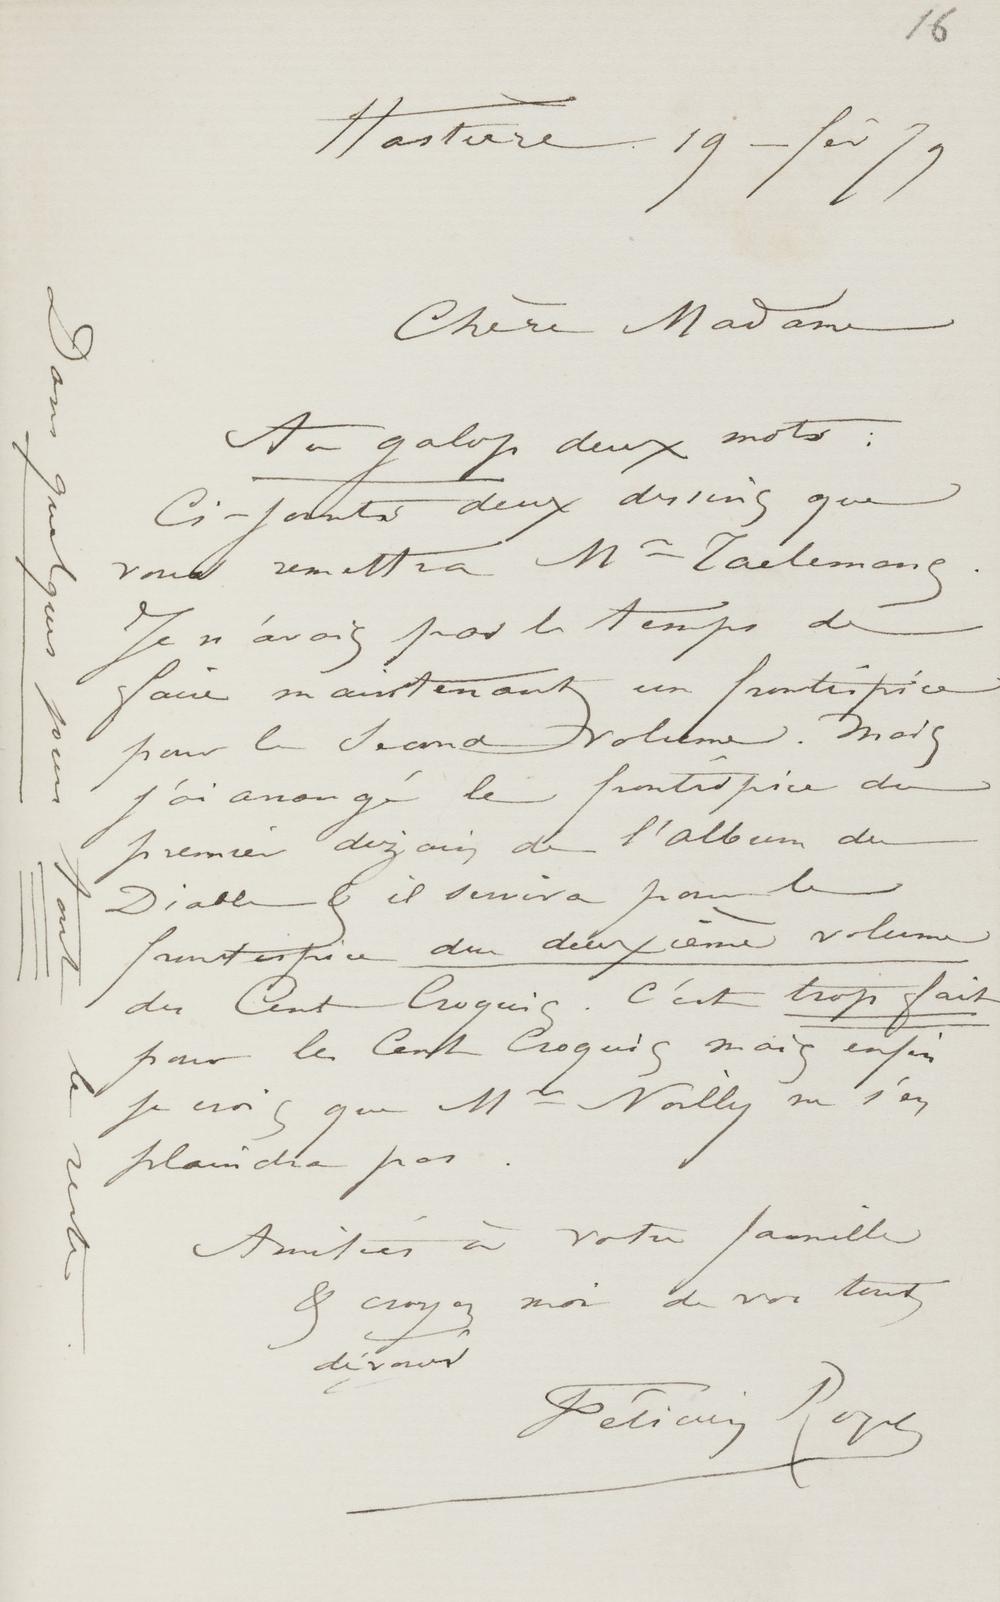 16
Hastière 19 – fév 79
Chère Madame
Au galop deux mots :
Ci-joints deux dessins que
vous remettra Mr Taelemans.
Je n'avais pas le temps de
faire maintenant un frontispice
pour le Second volume. Mais
j'ai arrangé le frontispice du
premier dizain de l'album du
Diable & il servira pour le
frontispice du deuxième volume
des Cent Croquis. C'est trop fait
pour les Cent Croquis mais enfin
je crois que Mr Noilly ne s'en
plaindra pas.
Amitiés à votre famille
& croyez moi de vos touts
dévoués
Félicien Rops
Dans quelques jours tout le reste.